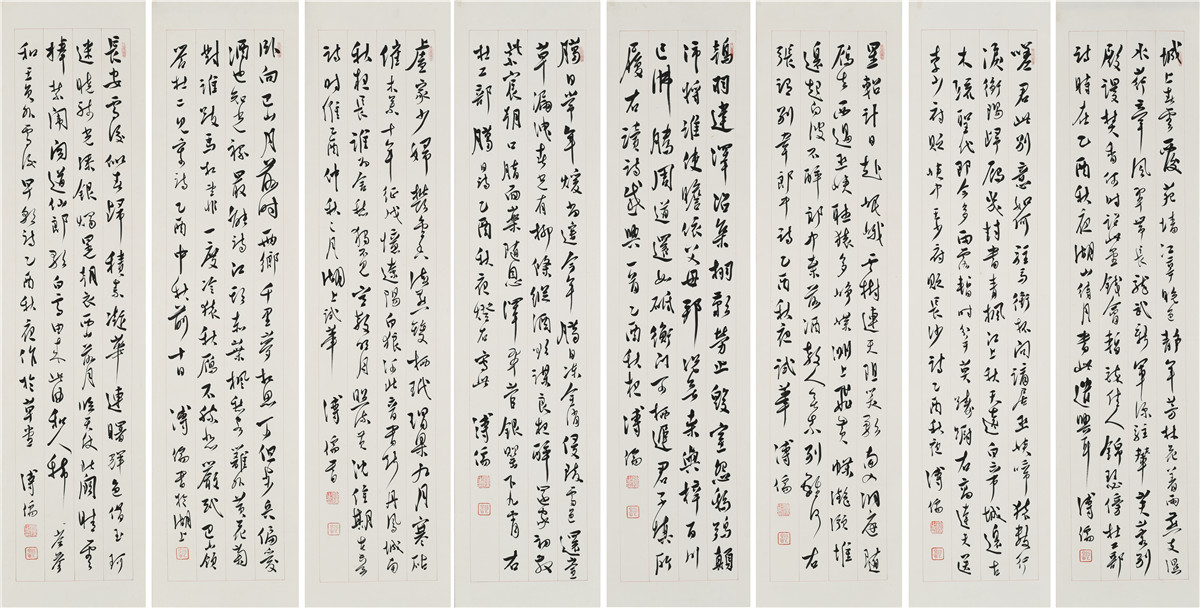 城上春雲覆苑墻江亭晚色靜年芳林花著雨燕支濕
水荇牽風翠帶長龍武新軍深駐輦芙蓉別
殿謾焚香何時詔此金錢會暫醉佳人錦瑟傍杜工部
詩時在乙酉秋夜湖山待月書此遣興耳 溥儒
嗟君此別意如何駐馬銜杯問謫居巫峽啼猿數行
淚衡陽歸雁幾封書青楓江上秋天遠白帝城邊古
木疏聖代即今多雨露暫時分手莫躊躇右高達夫送
李少府貶峽中王少府貶長沙詩乙酉秋夜 溥儒
星軺計日赴岷峨雲樹連天阻笑歌南入洞庭隨
雁去西過巫峽聽猿多崢嶸洲上飛黃蝶灩澦堆
邊起白波不醉郎中桑落酒教人無奈別離何右
張謂別韋郎中詩乙酉秋夜試筆 溥儒
鴇羽集栩歌勞止毀室怨鴟鴞顛
沛將誰使瞻依父母邦無桑與梓百川
已沸騰周道還如砥衡門可棲遲君子慎所
履右讀詩感興一首乙酉秋杪 溥儒
臘日常年暖尚遙今年臘日凍全消侵陵雪色還萱
草漏洩春光有柳條縱酒欲謀良夜醉還家初散
紫宸朝口脂面藥隨恩澤翠管銀罌下九霄右
杜工部臘日詩乙酉秋夜燈右寫此 溥儒
盧家少婦鬱金香海燕雙棲玳瑁梁九月寒砧
催木葉十年征戍憶遼陽白狼河北音書斷丹鳳城南
秋夜長誰為含愁獨不見更教明月照流黃沈佺期古意
詩時維乙酉仲秋之月湖上試筆 溥儒書
臥向巴山月落時兩鄉千里夢相思可但步兵偏愛
酒也知光祿最能詩江頭赤葉楓愁客籬外黃花菊
對誰跂馬望君非一度冷猿秋雁不勝悲嚴武巴嶺
答杜二見憶詩乙酉中秋前十日 溥儒書於湖上
長安雪後似春歸積素凝華連曙輝色借玉珂
迷曉騎光添銀燭晃朝衣西山落月臨天仗北闕晴雲
捧禁闈聞道仙郎歌白雪由來此曲和人稀 岑參
和王員外雪後早朝詩乙酉秋夜作於草堂 溥儒